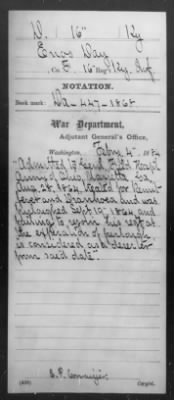 D. | 16" | Ky
Enos Day
Co. F. 16" Reg't Ky. Inf.
NOTATION.
Book mark: Wa-447-1868
War Department,
Adjutant General's Office,
Washington, Febry. 4" 1884
Admitted to Genl. Field Hosp'l
Army of Ohio, Marietta Ga
Aug. 28, 1864, treated for Remit
fever and Diarrhoea and was
furloughed Sept. 19" 1864, and
failing to rejoin his regt. at
the expiration of furlough
is considered as a deserter
from said date.
(459)
Copyist.